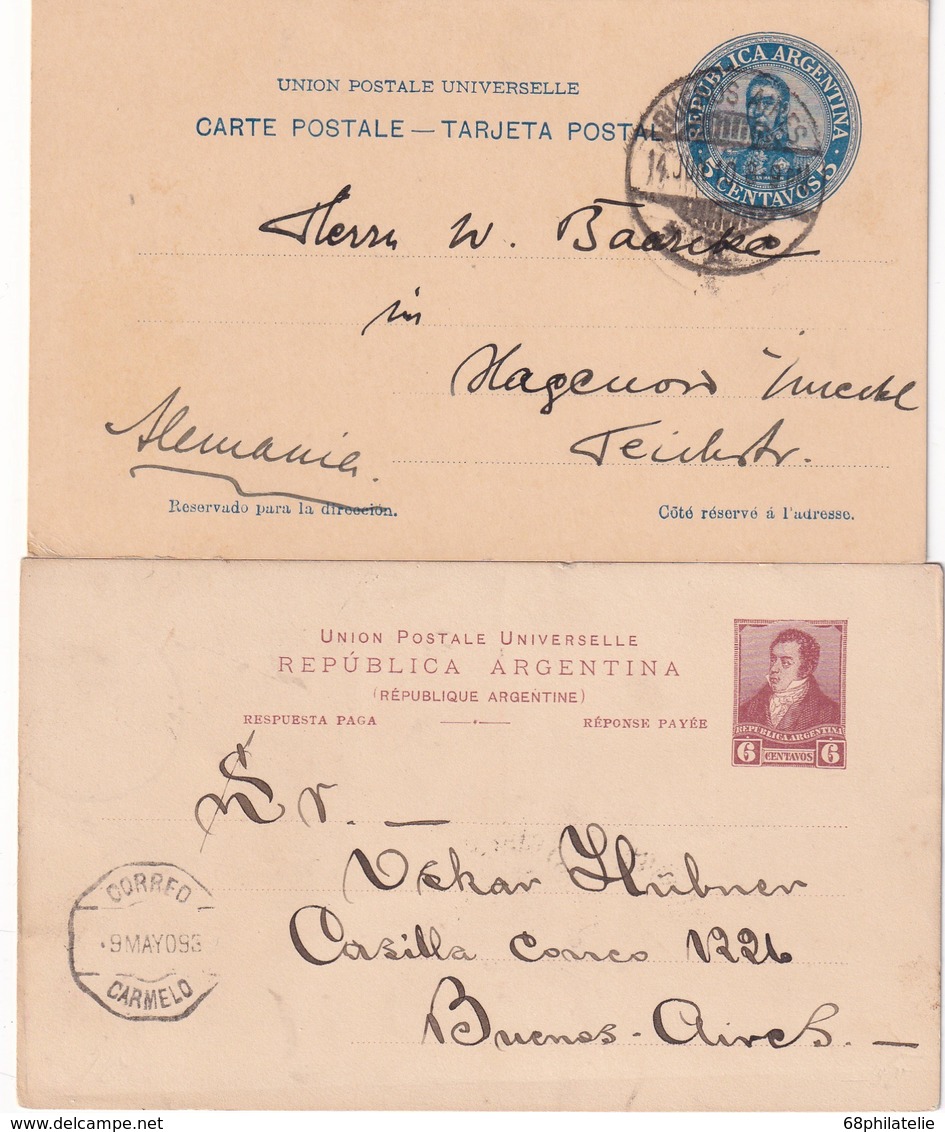 UNION POSTALE UNIVERSELLE
CARTE POSTALE — TARJETA POSTAL
REPUBLICA ARGENTINA
5 CENTAVOS 5
BUENOS AIRES
Herrn W.
in
Hagenow i/Meckl
Teichstr.
Alemania
Reservado para la dirección.
Côté réservé á l'adresse.
UNION POSTALE UNIVERSELLE
REPÚBLICA ARGENTINA
(RÉPUBLIQUE ARGENTINE)
RESPUESTA PAGA
RÉPONSE PAYÉE
REPUBLICA ARGENTINA
6 CENTAVOS 6
Sr. —
Oskar Hübner
Casilla Correo 1226
Buenos-Aires. —
CORREO
9 MAYO 93
CARMELO
delcampe.net
68philatelie